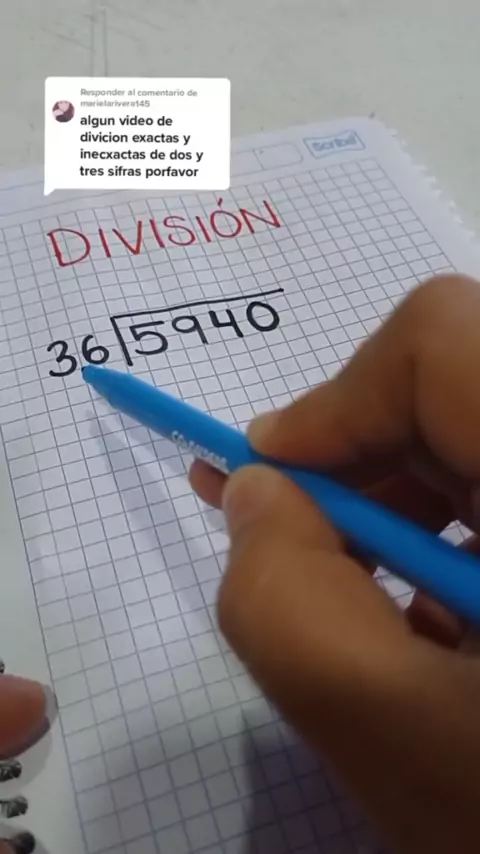 Responder al comentario de
marielarivera145
algun video de
divicion exactas y
inecxactas de dos y
tres sifras porfavor
Scribe
DIVISIÓN
36 5940